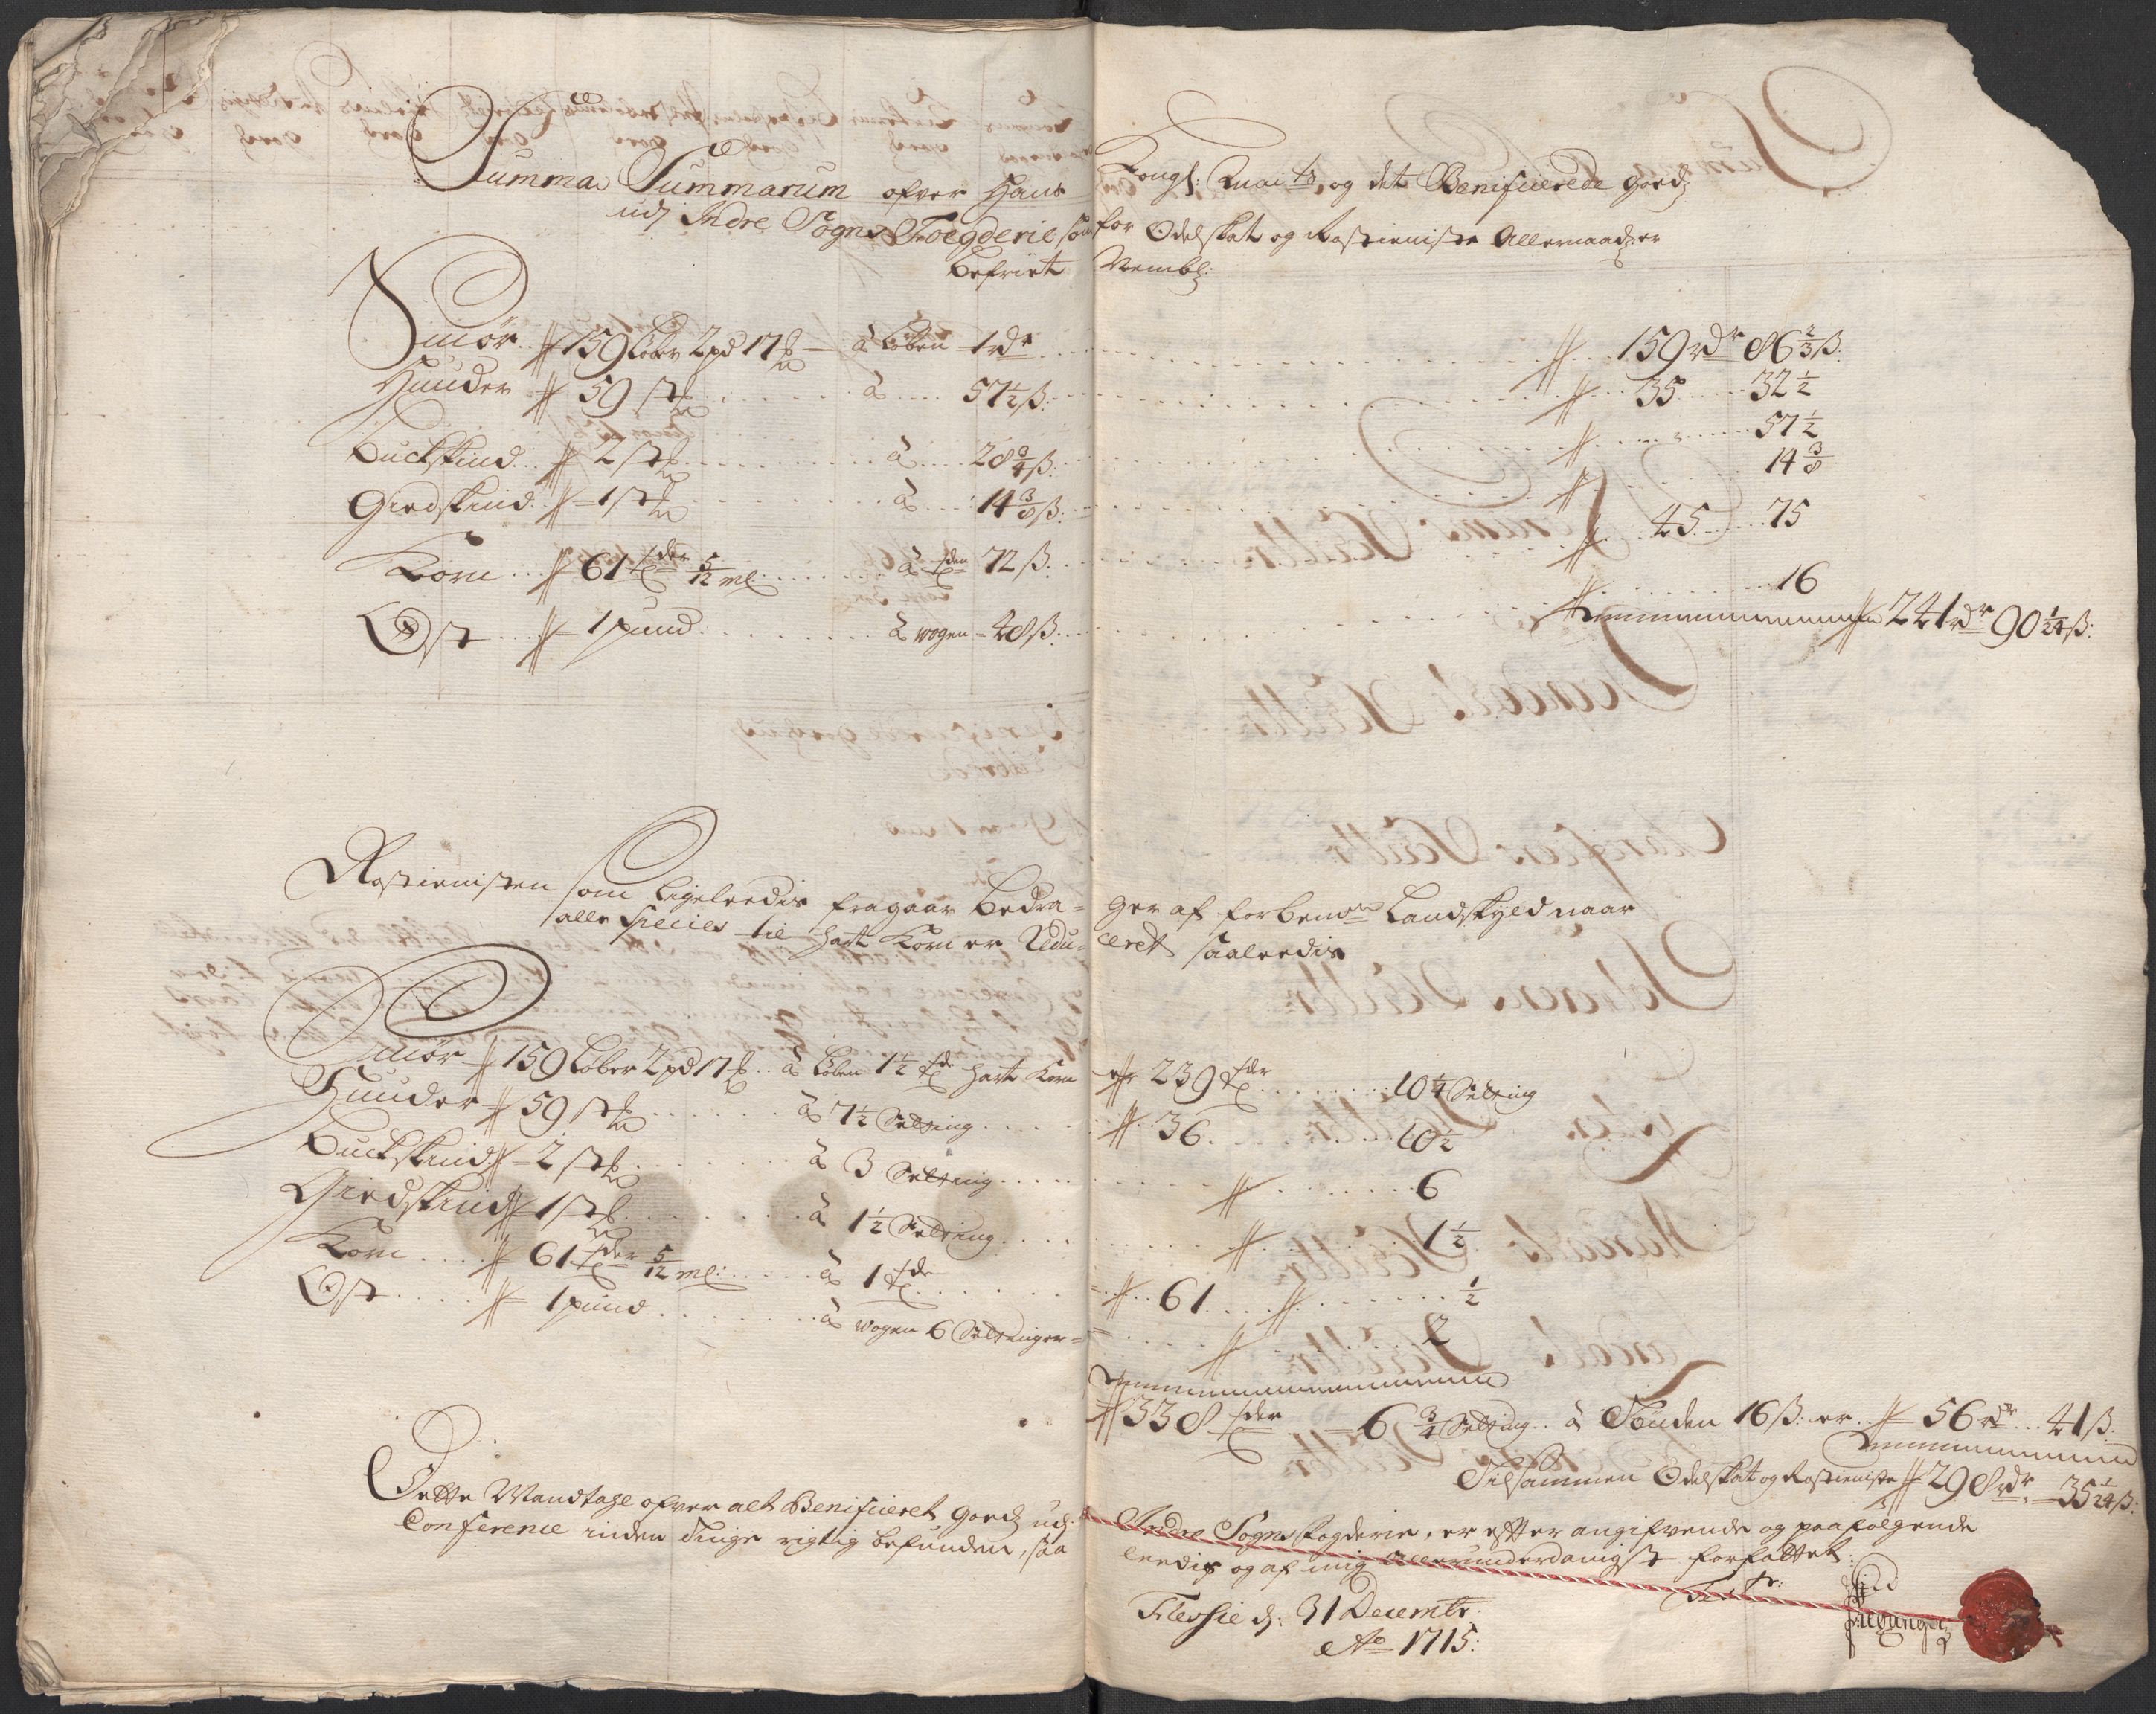 Summa Summarum ofver Hans Kongl: Mai:ts og det Benificerede goedz
udj Indre Sogns Foegderie som for Odelskat og Rostieniste Allernaad: er
befriet Nembl:
Smør # 159 Løber 2 pd 17 ℔ à Løben 1 rdr # 159 rdr 86 2/3 ß:
Huuder # 59 stk à 57 1/2 ß: # 35 32 1/2
Buckskind # 2 stk à 28 3/4 ß: # 57 1/2
Giedskind # 1 stk à 14 3/8 ß: # 14 3/8
Korn # 61 tder 5/12 ml à tden 72 ß: # 45 75
Ost # 1 pund à wogen 48 ß: # 16
# 241 rdr 90 1/24 ß:
Rostienisten som ligeleedis fragaar bedra= ger af forbente Landskyld naar
alle Species til hart Korn er Redu= ceret saaleedis
Smør # 159 Løber 2 pd 17 ℔ à Løben 1 1/2 tde hart Korn er 239 tdr 10 1/4 Setting
Huuder # 59 stk à 7 1/2 Setting # 36 10 1/2
Buckskind # 2 stk à 3 Setting # 6
Giedskind # 1 stk à 1 1/2 Setting # 1 1/2
Korn # 61 tder 5/12 ml: à 1 tde # 61 # 1/2
Ost # 1 pund à wogen 6 Settinger = # 2
# 338 tder 6 3/4 Setting à Tønden 16 ß: er # 56 rdr 41 ß:
Tilsammen Odelskat og Rostieniste # 298 rdr 35 1/24 ß:
Dette Mandtahl ofver alt Benificieret goedz udj Indre Sogns fogderie, er efter angifvende og paafølgende
Conference inden Tinge rigtig befunden, saa leedis og af mig allerunderdanigst forfattet:
Flessie d: 31 Decembr:
Ao 1715: